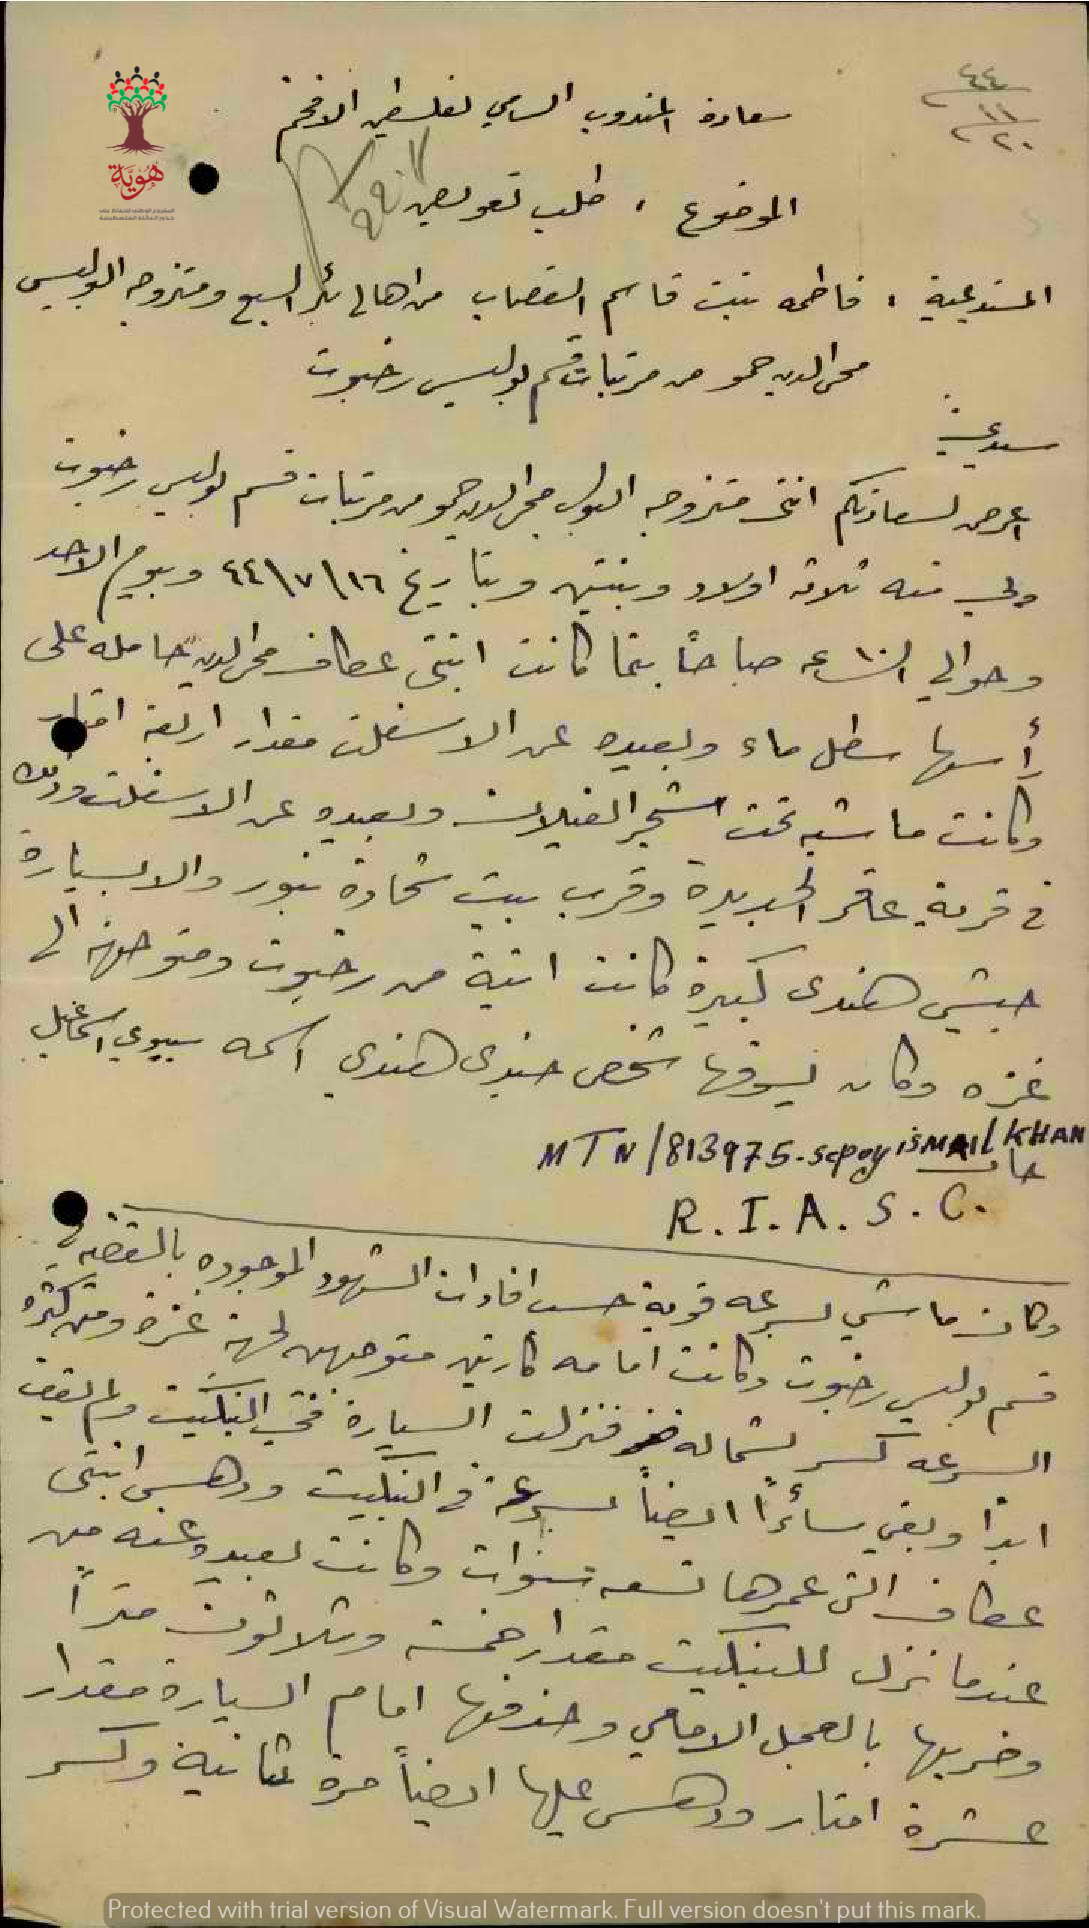 ٤٤
١١
٢٠
سعادة المندوب السامي لفلسطين الافخم
الموضوع : طلب تعويض
هُوِيَّة
المستدعية : فاطمه بنت قاسم القصاب من اهالي بئر السبع ومتزوجه البوليس
محي الدين حمو من مرتبات قسم بوليس رخبوت
سيدي
اعرض لسعادتكم انني متزوجه البوليس محي الدين حمو من مرتبات قسم بوليس رخبوت
ولي منه ثلاثه اولاد وبنتين وبتاريخ ١٦/٧/٤٤ وبيوم الاحد
وحوالي الساعه صباحاً بينما كانت ابنتي عطاف محي الدين حامله على
رأسها سطل ماء وبعيده عن الاسفلت مقدار اربعة امتار
وكانت ماشيه تحت شجر الفيلان وبعيده عن الاسفلت وذلك
في قرية عاقر الجديدة وقرب بيت شحادة والا بسيارة
جيش هندي كبيرة كانت اتية من رخبوت ومتوجهة الى
غزه وكان يسوقها شخص جندي هندي اسمه سيبوي اسماعيل
خان
MTN/813975-sepoy iSMAIL KHAN
R.I.A.S.C.
وكان ماشي بسرعه قوية حسب افادات الشهود الموجوده بالقضيه في
قسم بوليس رخبوت وكانت امامه كارتين متوجهين لجهة غزة ومن كثرة
السرعه كسر لشماله فنزلت السيارة في البنكيت ولم يقف
ابداً وبقي سائراً ايضاً بسرعة في البنكيت ودهس ابنتي
عطاف التي عمرها تسعه سنوات وكانت بعيده عنه من
عندما نزل للبنكيت مقدار خمسه وثلاثون متراً
وضربها بالعجل الامامي وحذفها امام السيارة مقدار
عشرة امتار ودهس عليها ايضاً مرة ثانية وكسر
Protected with trial version of Visual Watermark. Full version doesn't put this mark.